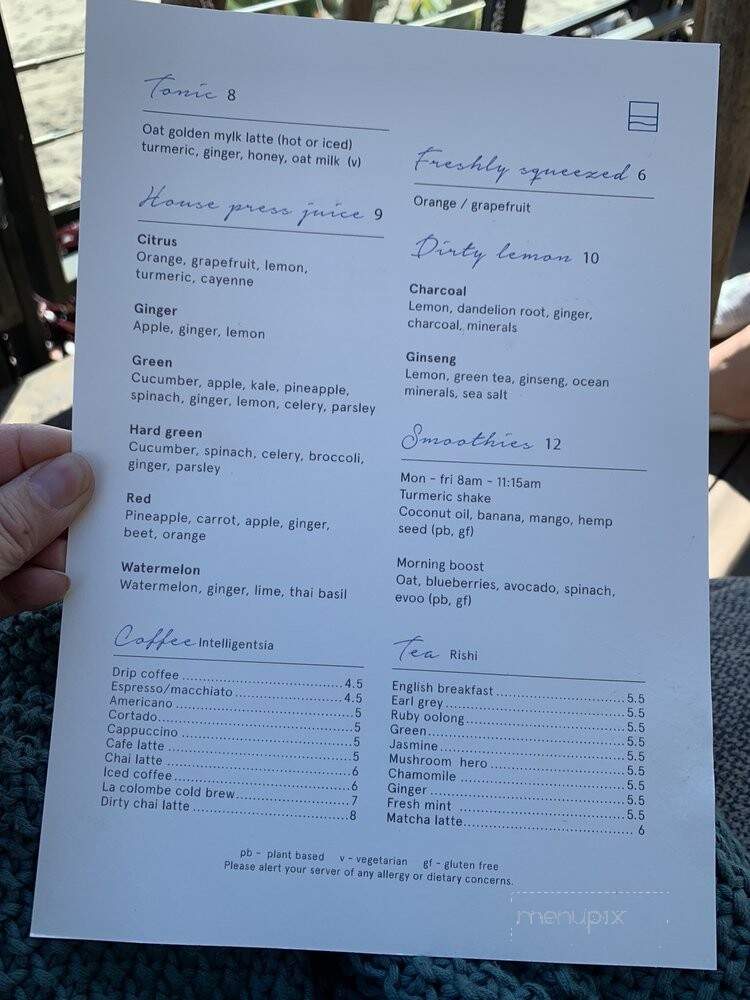 Tonic 8
Oat golden mylk latte (hot or iced)
turmeric, ginger, honey, oat milk (v)
House press juice 9
Citrus
Orange, grapefruit, lemon,
turmeric, cayenne
Ginger
Apple, ginger, lemon
Green
Cucumber, apple, kale, pineapple,
spinach, ginger, lemon, celery, parsley
Hard green
Cucumber, spinach, celery, broccoli,
ginger, parsley
Red
Pineapple, carrot, apple, ginger,
beet, orange
Watermelon
Watermelon, ginger, lime, thai basil
Freshly squeezed 6
Orange / grapefruit
Dirty lemon 10
Charcoal
Lemon, dandelion root, ginger,
charcoal, minerals
Ginseng
Lemon, green tea, ginseng, ocean
minerals, sea salt
Smoothies 12
Mon - fri 8am - 11:15am
Turmeric shake
Coconut oil, banana, mango, hemp
seed (pb, gf)
Morning boost
Oat, blueberries, avocado, spinach,
evoo (pb, gf)
Coffee Intelligentsia
Drip coffee 4.5
Espresso/macchiato 4.5
Americano 5
Cortado 5
Cappuccino 5
Cafe latte 5
Chai latte 6
Iced coffee 6
La colombe cold brew 7
Dirty chai latte 8
Tea Rishi
English breakfast 5.5
Earl grey 5.5
Ruby oolong 5.5
Green 5.5
Jasmine 5.5
Mushroom hero 5.5
Chamomile 5.5
Ginger 5.5
Fresh mint 5.5
Matcha latte 6
pb - plant based v - vegetarian gf - gluten free
Please alert your server of any allergy or dietary concerns.
menupix